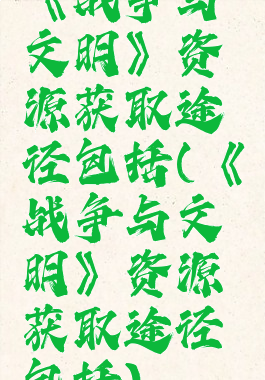 《战争与
文明》资
源获取途
径包括(《
战争与文
明》资源
获取途径
包括)